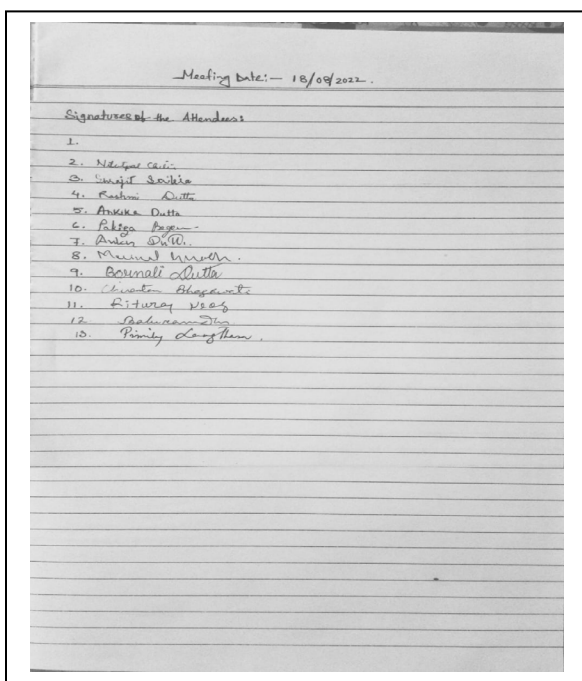 Meeting Date:- 18/08/2022.
Signatures of the Attendees:
1.
2.
3. Surajit Saikia
4. Rashmi Dutta
5. Ankika Dutta
6. Pakiza Begum
7. Ankur Dutta
8.
9. Bornali Dutta
10. Bhagawati
11. Rituraj Neog
12.
13. Pimily Langthem.